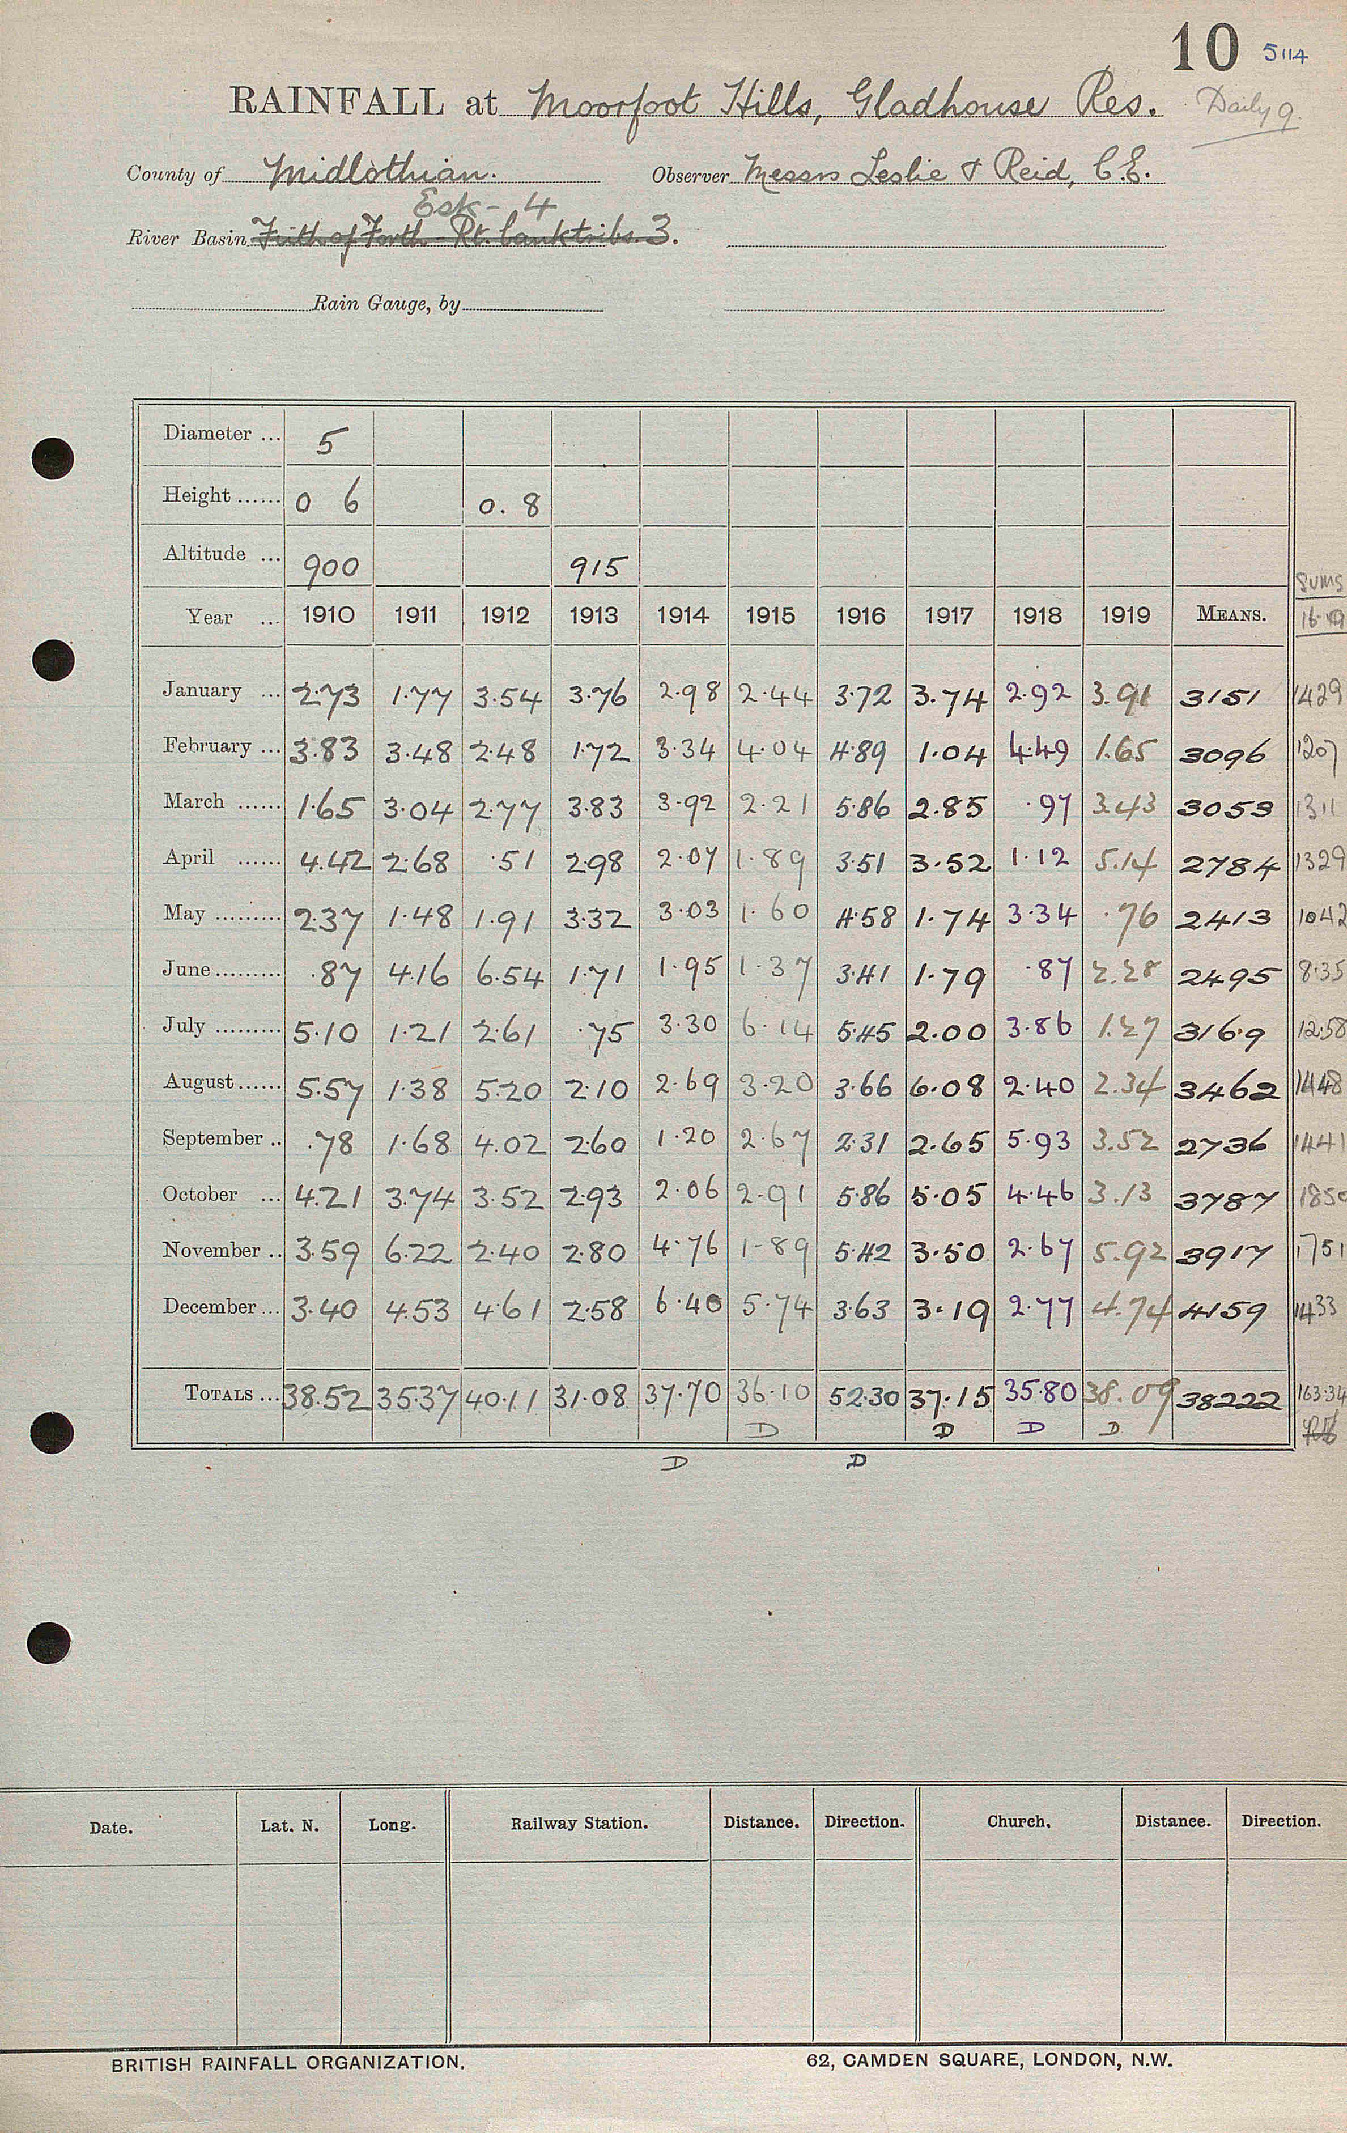 10 5114
RAINFALL at Moorfoot Hills, Gladhouse Res. Daily 9.
County of Midlothian. Observer Messrs Leslie & Reid, C.E.
Esk - 4
River Basin Frith of Forth - Rt. bank tribs. 3.
Rain Gauge, by
Diameter ... 5
Height ...... 0 6 0.8
Altitude ... 900 915
Sums
Year ... 1910 1911 1912 1913 1914 1915 1916 1917 1918 1919 MEANS. 16-19
January ... 2.73 1.77 3.54 3.76 2.98 2.44 3.72 3.74 2.92 3.91 3151 1429
February ... 3.83 3.48 2.48 1.72 3.34 4.04 4.89 1.04 4.49 1.65 3096 1207
March ...... 1.65 3.04 2.77 3.83 3.92 2.21 5.86 2.85 .97 3.43 3053 1311
April ...... 4.42 2.68 .51 2.98 2.07 1.89 3.51 3.52 1.12 5.14 2784 1329
May ......... 2.37 1.48 1.91 3.32 3.03 1.60 4.58 1.74 3.34 .76 2413 1042
June ......... .87 4.16 6.54 1.71 1.95 1.37 3.41 1.79 .87 2.28 2495 8.35
July ......... 5.10 1.21 2.61 .75 3.30 6.14 5.45 2.00 3.86 1.27 3169 12.58
August ...... 5.57 1.38 5.20 2.10 2.69 3.20 3.66 6.08 2.40 2.34 3462 1448
September .. .78 1.68 4.02 2.60 1.20 2.67 2.31 2.65 5.93 3.52 2736 1441
October ... 4.21 3.74 3.52 2.93 2.06 2.91 5.86 5.05 4.46 3.13 3787 1850
November .. 3.59 6.22 2.40 2.80 4.76 1.89 5.42 3.50 2.67 5.92 3917 1751
December ... 3.40 4.53 4.61 2.58 6.40 5.74 3.63 3.19 2.77 4.74 4159 1433
TOTALS ... 38.52 35.37 40.11 31.08 37.70 36.10 52.30 37.15 35.80 38.09 38222 163.34
D D D D
D D
Date. Lat. N. Long. Railway Station. Distance. Direction. Church. Distance. Direction.
BRITISH RAINFALL ORGANIZATION. 62, CAMDEN SQUARE, LONDON, N.W.